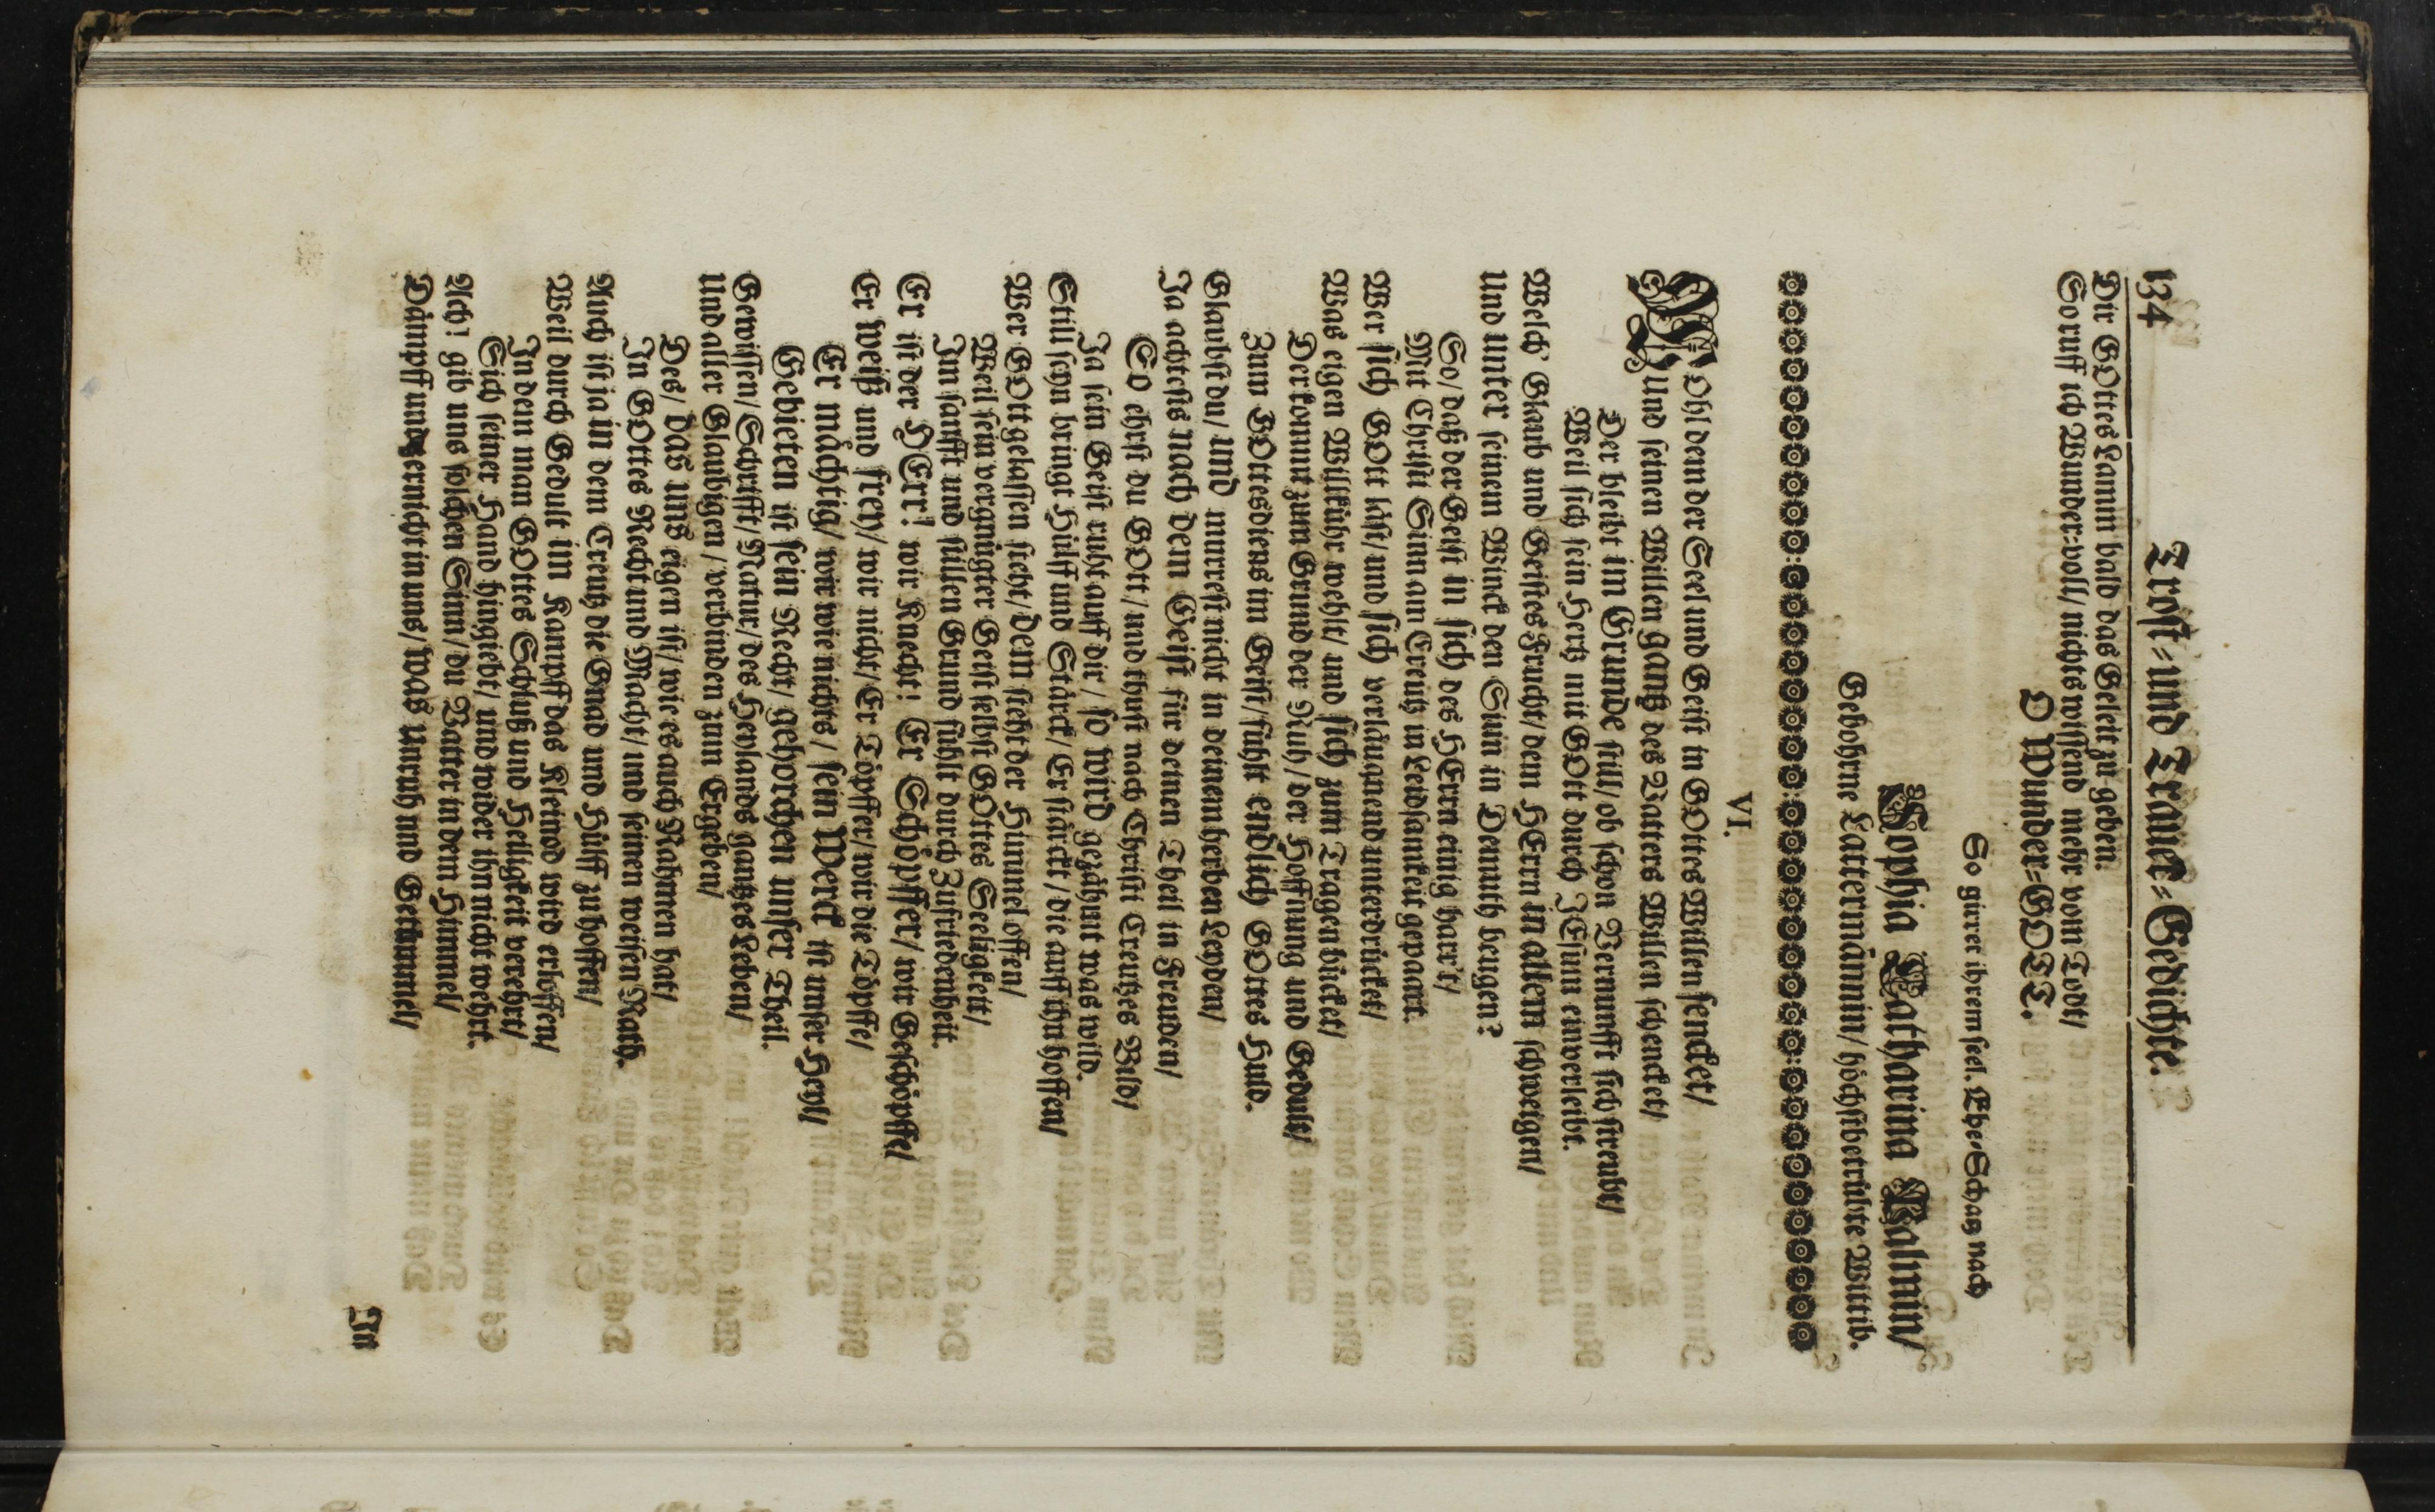 134 Trost- und Trauer-Gedichte.
Dir GOttes Lamm bald das Geleit zu geben.
So ruff ich Wunder-voll/ nichts wissend mehr vom Todt/
O Wunder-GOTT.
So girret ihrem seel. Ehe-Schatz nach
Sophia Catharina Palmin/
Gebohrne Lattermännin/ höchstbetrübte Wittib.
VI.
WOhl dem der Seel und Geist in GOttes Willen sencket/
Und seinen Willen gantz des Vatters Willen schencket/
Der bleibt im Grunde still/ ob schon Vernunfft sich streubt/
Weil sich sein Hertz mit GOtt durch JEsum einverleibt.
Welch' Glaub und Geistes Frucht/ dem HErrn in allem schweigen/
Und unter seinem Winck den Sinn in Demuth beugen?
So/ daß der Geist in sich des HErrn einig harrt/
Mit Christi Sinn am Creutz in Leidsamkeit gepaart.
Wer sich GOtt läst/ und sich verläugnend unterdrücket/
Was eigen Willkühr wehlt/ und sich zum Tragen bücket/
Der kommt zum Grund der Ruh/ der Hoffnung und Gedult/
Zum GOttesdienst im Geist/ fühlt endlich GOttes Huld.
Glaubst du/ und murrest nicht in deinem herben Leyden/
Ja achtests nach dem Geist für deinen Theil in Freuden/
So ehrst du GOtt/ und thust nach Christi Creutzes Bild/
Ja sein Geist ruht auff dir/ so wird gezähmt was wild.
Still seyn bringt Hülff und Stärck/ Er stärckt/ die auff ihn hoffen/
Wer GOtt gelassen steht/ dem steht der Himmel offen/
Weil sein vergnügter Geist selbst GOttes Seeligkeit/
Im sanfft und stillen Grund fühlt durch Zufriedenheit.
Er ist der HErr! wir Knecht! Er Schöpffer/ wir Geschöpffe/
Er weiß und frey/ wir nicht/ Er Töpffer/ wir die Töpffe/
Er mächtig/ wir wie nichts/ sein Werck ist unser Heyl/
Gebieten ist sein Recht/ gehorchen unser Theil.
Gewissen/ Schrifft/ Natur/ des Heylands gantzes Leben/
Und aller Glaubigen/ verbinden zum Ergeben/
Des/ das uns eigen ist/ wie es auch Nahmen hat/
In GOttes Recht und Macht/ und seinen weisen Rath.
Auch ist ja in dem Creutz die Gnad und Hülff zu hoffen/
Weil durch Gedult im Kampff das Kleinod wird erloffen/
In dem man GOttes Schluß und Heiligkeit verehrt/
Sich seiner Hand hingiebt/ und wider ihn nicht wehrt.
Ach! gib uns solchen Sinn/ du Vatter in dem Himmel/
Dämpff und zernicht in uns/ was Unruh und Getümmel/
In